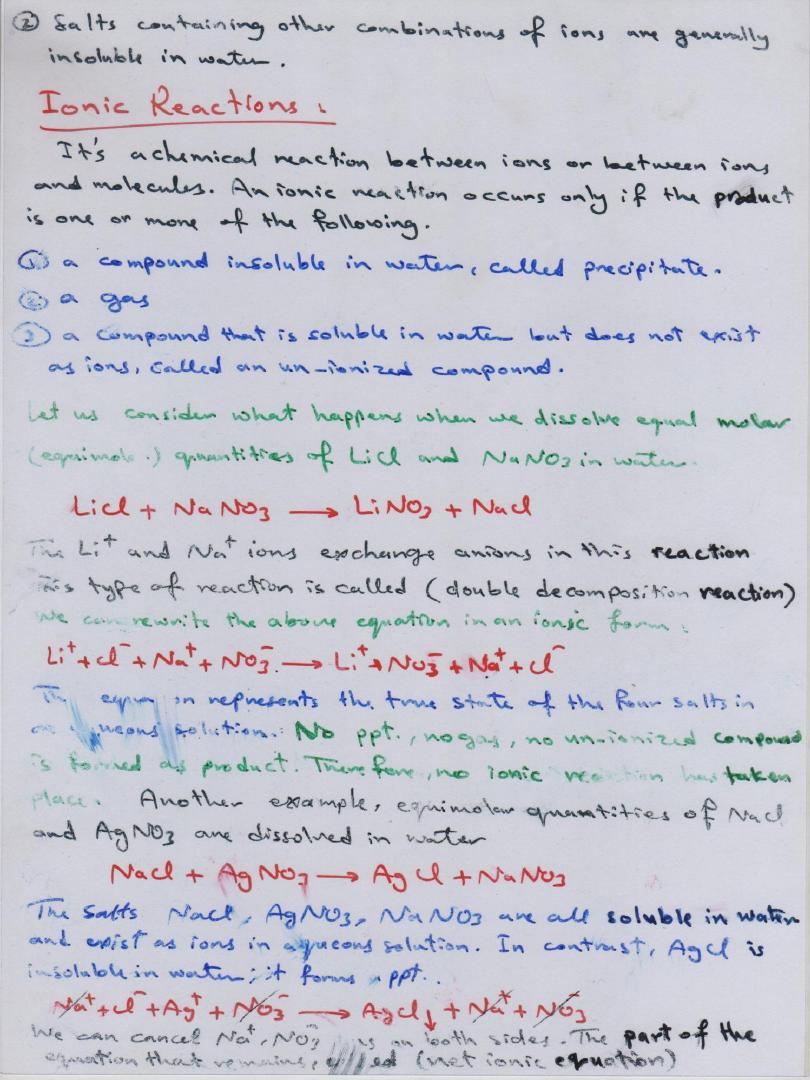 ② Salts containing other combinations of ions are generally
insoluble in water.
Ionic Reactions :
It's a chemical reaction between ions or between ions
and molecules. An ionic reaction occurs only if the product
is one or more of the following.
① a compound insoluble in water, called precipitate.
② a gas
③ a compound that is soluble in water but does not exist
as ions, called an un-ionized compound.
Let us consider what happens when we dissolve equal molar
(equimole.) quantities of LiCl and NaNO3 in water.
LiCl + NaNO3 → LiNO3 + NaCl
The Li⁺ and Na⁺ ions exchange anions in this reaction
This type of reaction is called (double decomposition reaction)
We can rewrite the above equation in an ionic form :
Li⁺ + Cl⁻ + Na⁺ + NO3⁻ → Li⁺ + NO3⁻ + Na⁺ + Cl⁻
represents the true state of the four salts in
solution. No ppt., no gas, no un-ionized compound
is formed as product. Therefore, no ionic reaction has taken
place. Another example, equimolar quantities of NaCl
and AgNO3 are dissolved in water
NaCl + AgNO3 → AgCl + NaNO3
The salts NaCl, AgNO3, NaNO3 are all soluble in water
and exist as ions in aqueous solution. In contrast, AgCl is
insoluble in water; it forms a ppt..
Na⁺ + Cl⁻ + Ag⁺ + NO3⁻ → AgCl↓ + Na⁺ + NO3⁻
We can cancel Na⁺, NO3⁻ on both sides. The part of the
equation that remains, (net ionic equation)